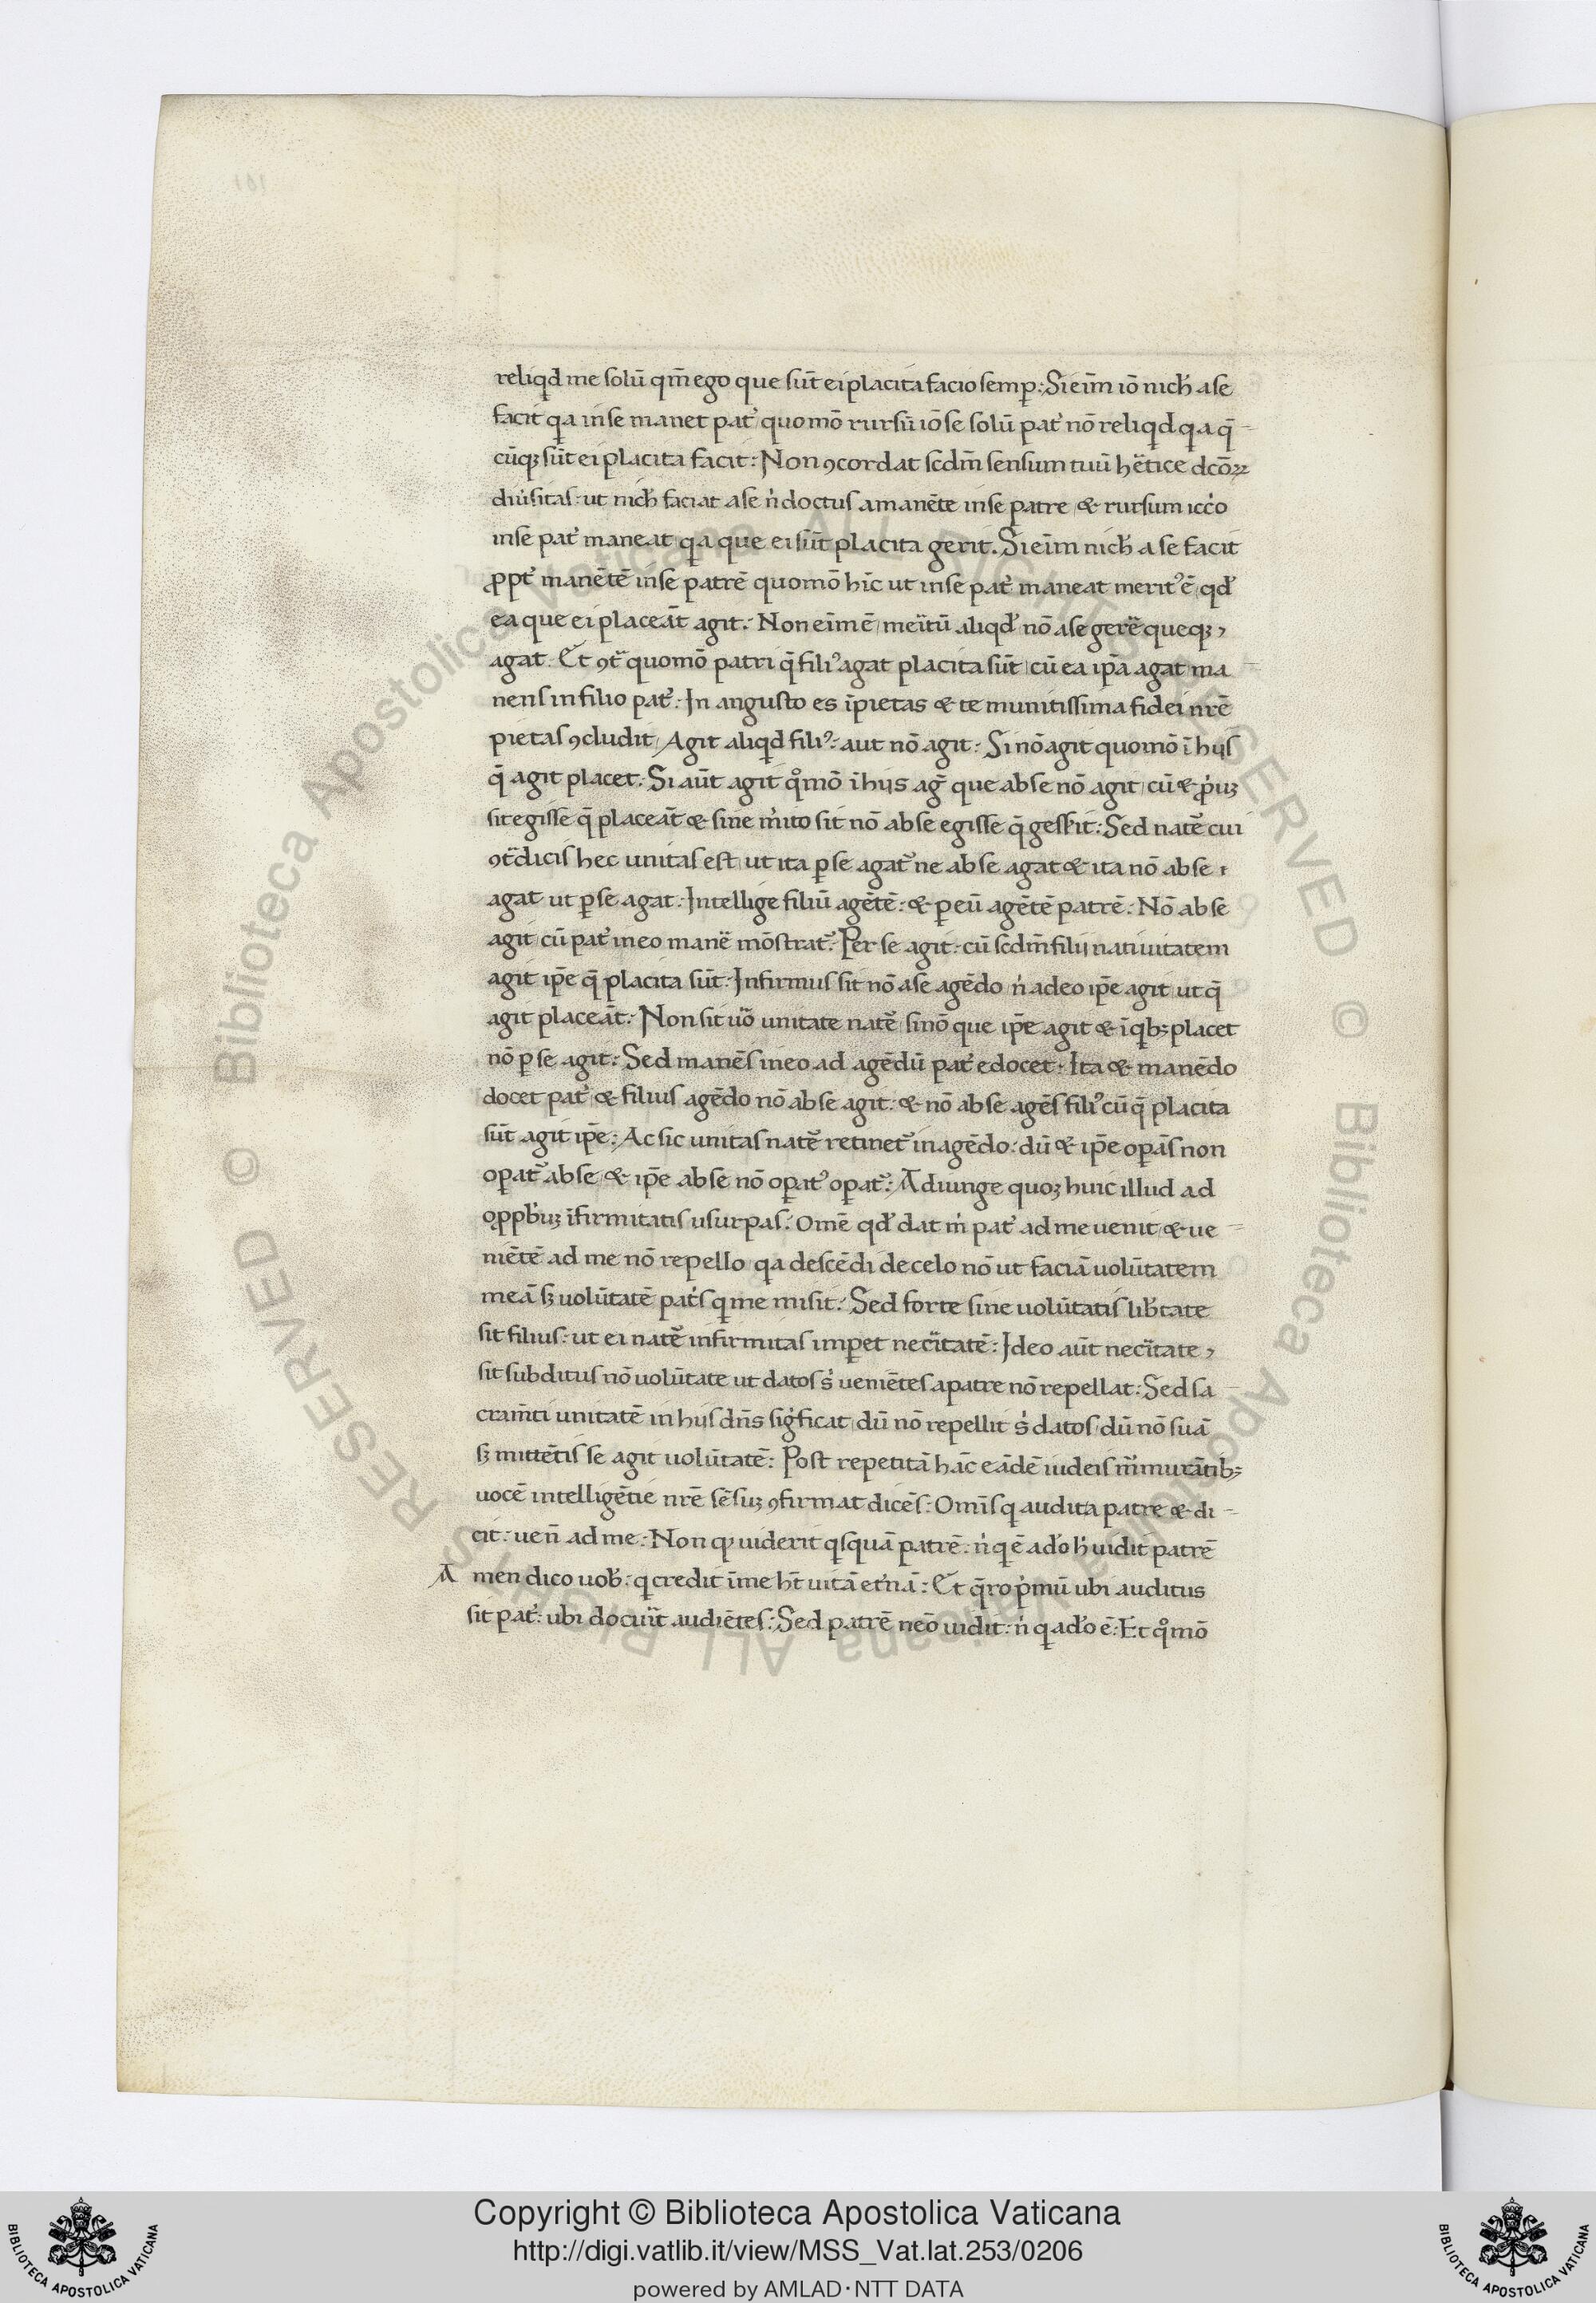 reliqd me solū qm̄ ego que sūt ei placita facio semp̱: Si eīm iō nich̓ a se
facit qa in se manet pat̓ quomō rursū iō se solū pat̓ nō reliqd qa q̄
cūqꝫ sūt ei placita facit: Non ꝯcordat scdm̄ sensum tuū h̓etice dcōꝝ
diu̓sitas: ut nich̓ faciat a se n̓ doctus a manēte in se patre & rursum icc̓o
in se pat̓ maneat qa que ei sūt placita gerit. Si eīm nich̓ a se facit
ꝓpt̓ manētē in se patrē quomō hīc ut in se pat̓ maneat meritꝰ ē qd̓
ea que ei placeāt agit: Non eīm ē meitū aliqd̓ nō a se gere̓ queqꝫ
agat. Et ꝯt̄ quomō patri q̄ filiꝰ agat placita sūt cū ea ip̄a agat ma
nens in filio pat̓: In angusto es īpietas & te munitissima fidei nrē
pietas ꝯcludit Agit aliqd filiꝰ: aut nō agit: Si nō agit quomō ī hijs
q̄ agit placet: Si aūt agit qͦmō ī hijs ag̓ que ab se nō agit cū & ꝓ̓uꝫ
sit egisse q̄ placeāt & sine m̓ito sit nō ab se egisse q̄ gessit: Sed nate̓ cui
ꝯt̄dicis hec unitas est ut ita ꝑ se agat̓ ne ab se agat & ita nō ab se
agat ut ꝑ se agat: Intellige filiū agētē: & ꝑ eū agētē patrē: Nō ab se
agit cū pat̓ in eo mane̓ mōstrat̓: Per se agit: cū scdm̄ filii natiuitatem
agit ip̄e q̄ placita sūt: Infirmus sit nō a se agēdo n̓ adeo ip̄e agit ut q̄
agit placeāt: Non sit u̓o unitate nate̓ si nō que ip̄e agit & ī qbꝫ placet
nō ꝑ se agit: Sed manēs in eo ad agēdū pat̓ edocet: Ita & manēdo
docet pat̓ & filius agēdo nō ab se agit: & nō ab se agēs filiꝰ cū q̄ placita
sūt agit ip̄e: Ac sic unitas nate̓ retinet̓ in agēdo: dū & ip̄e oꝑās non
oꝑat̓ ab se & ip̄e ab se nō oꝑat̓ oꝑat̓: Adiunge quoꝫ huic illud ad
oꝓpb̓uꝫ īfirmitatis usurpas: Omē qd̓ dat m̓ pat̓ ad me uenit & ue
niētē ad me nō repello qa descēdi de celo nō ut faciā uolūtatem
meā sꝫ uolūtatē pat̓s q me misit: Sed forte sine uolūtatis lib̓tate
sit filius: ut ei nate̓ infirmitas imꝑet nec̓itatē: Ideo aūt nec̓itate
sit subditus nō uolūtate ut datos s̓ ueniētes a patre nō repellat: Sed sa
cram̄ti unitatē in hijs dn̄s sig̓ficat dū nō repellit s̓ datos dū nō suā
sꝫ mittētis se agit uolūtatē: Post repetitā hāc eādē iudeis m̄murātibꝫ
uocē intelligētie nrē sēsuꝫ ꝯfirmat dicēs: Omīs q audit a patre & di
cit: ueñ ad me: Non qꝫ uiderit qsquā patrē: n̓ q ē a do̓ h̓ uidit patrē
A men dico uob̓: q credit ī me ht̄ uitā et̓nā: Et q̄ro p̓mū ubi auditus
sit pat̓: ubi docuit̓ audiētes: Sed patrē neō uidit: n̓ q a do̓ ē: Et qͦmō
Copyright © Biblioteca Apostolica Vaticana
http://digi.vatlib.it/view/MSS_Vat.lat.253/0206
powered by AMLAD·NTT DATA